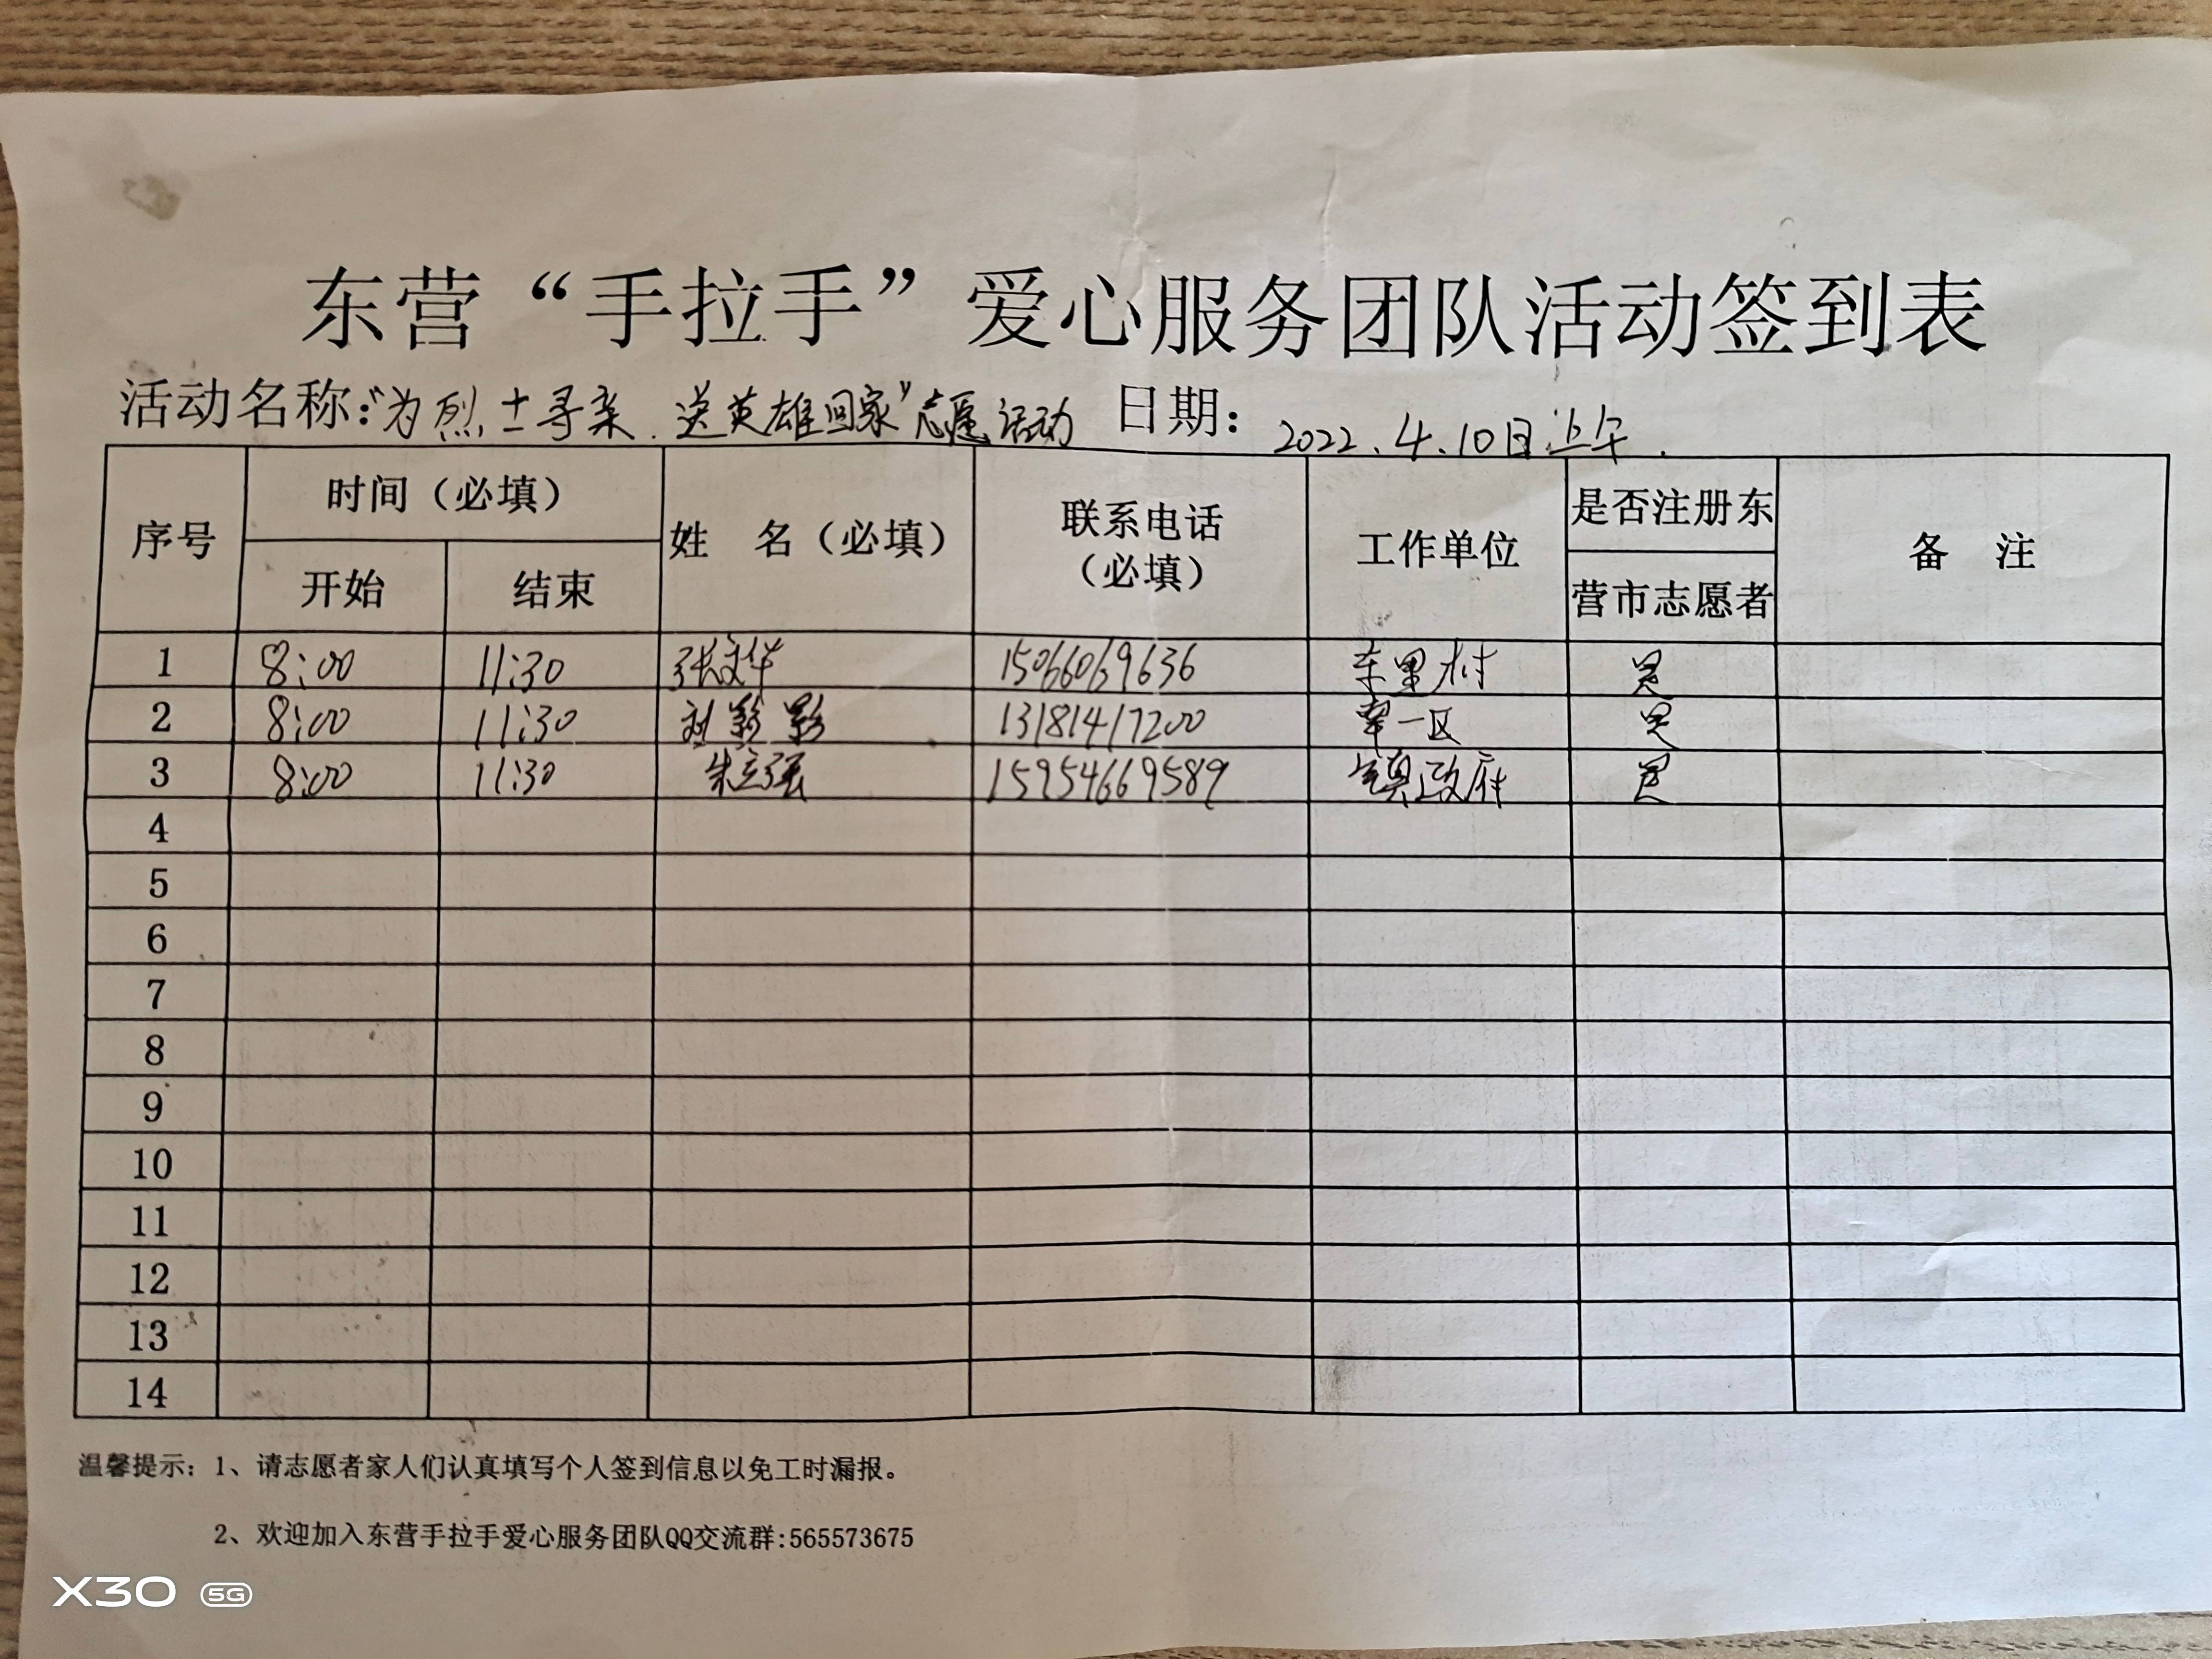 东营“手拉手”爱心服务团队活动签到表
活动名称：“为烈士寻亲.送英雄回家”志愿活动 日期： 2022.4.10日上午.
序号 时间（必填） 姓 名（必填） 联系电话（必填） 工作单位 是否注册东营市志愿者 备 注
开始 结束
1 8:00 11:30 张文华 15066069636 村 是
2 8:00 11:30 刘彩彩 13181417200 一区 是
3 8:00 11:30 朱立强 15954669589 镇政府 是
4
5
6
7
8
9
10
11
12
13
14
温馨提示：1、请志愿者家人们认真填写个人签到信息以免工时漏报。
2、欢迎加入东营手拉手爱心服务团队QQ交流群:565573675
X30 5G